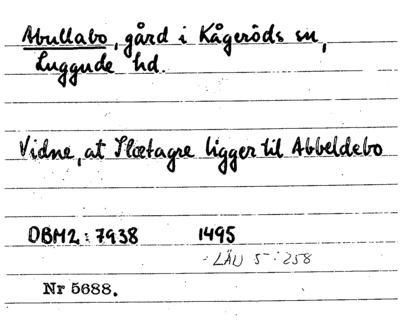 Abullabo, gård i Kågeröds sn,
Luggude hd.
Vidne, at Slætagre ligger til Abbeldebo
DBM2:7938 1495
LÄU 5:258
Nr 5688.